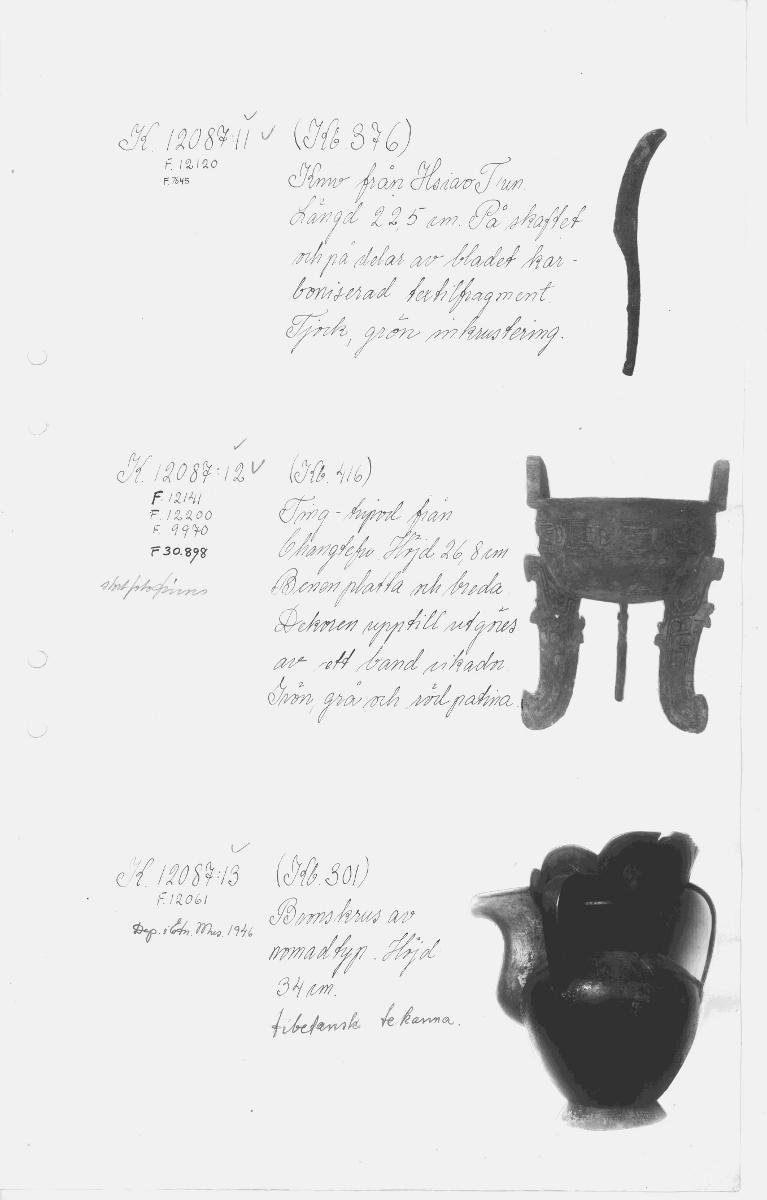 K. 12087:11 (Kb 376)
F. 12120
F. 7645
Kniv från Hsiao T'un.
Längd 22,5 cm. På skaftet
och på delar av bladet kar-
boniserad textilfragment.
Tjock, grön inkrustering.
K. 12087:12 (Kb. 416)
F. 12141
F. 12200
F. 9970
F 30.898
Ting-tripod från
Changtefu. Höjd 26,8 cm
Benen platta och breda.
Dekoren upptill utgöres
av ett band cikador.
Grön, grå och röd patina.
K. 12087:13 (Kb. 301)
F. 12061
Dep. i Etn. Mus. 1946
Bronskrus av
nomadtyp. Höjd
34 cm.
tibetansk tekanna.